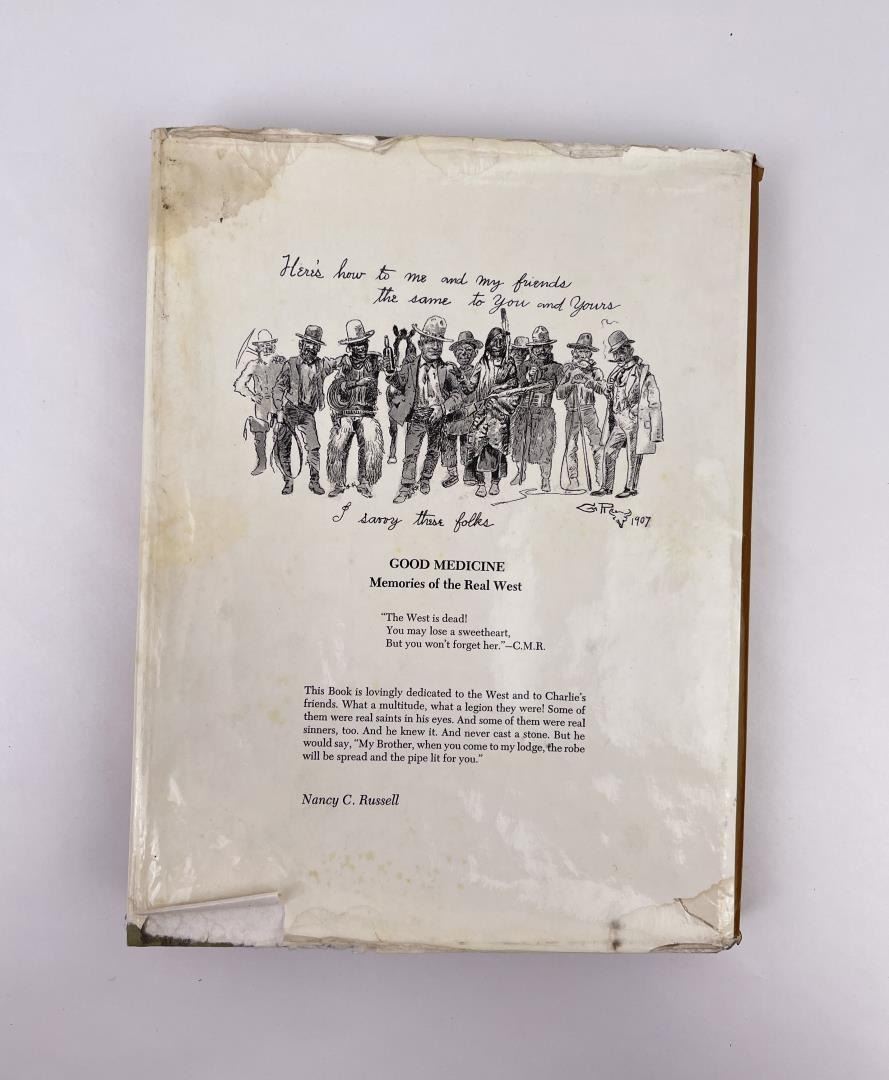 Here's how to me and my friends
the same to You and Yours
I savvy these folks
1907
GOOD MEDICINE
Memories of the Real West
“The West is dead!
You may lose a sweetheart,
But you won't forget her.”—C.M.R.
This Book is lovingly dedicated to the West and to Charlie's
friends. What a multitude, what a legion they were! Some of
them were real saints in his eyes. And some of them were real
sinners, too. And he knew it. And never cast a stone. But he
would say, “My Brother, when you come to my lodge, the robe
will be spread and the pipe lit for you.”
Nancy C. Russell